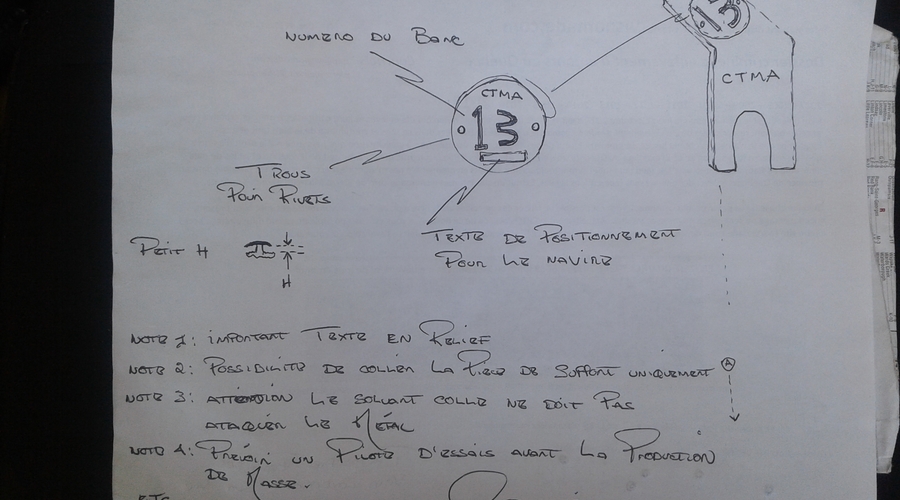 NUMERO DU BANC
13
CTMA
CTMA
13
TROUS
POUR RIVETS
TEXTE DE POSITIONNEMENT
POUR LE NAVIRE
PETIT H
H
NOTE 1: IMPORTANT TEXTE EN RELIEF
NOTE 2: POSSIBILITE DE COLLER LA PIECE DE SUPPORT UNIQUEMENT A
NOTE 3: ATTENTION LE SOLVANT COLLE NE DOIT PAS
ATAQUER LE MÉTAL
NOTE 4: PREVOIR UN PILOTE D'ESSAIS AVANT LA PRODUCTION
DE MASSE.
ETC